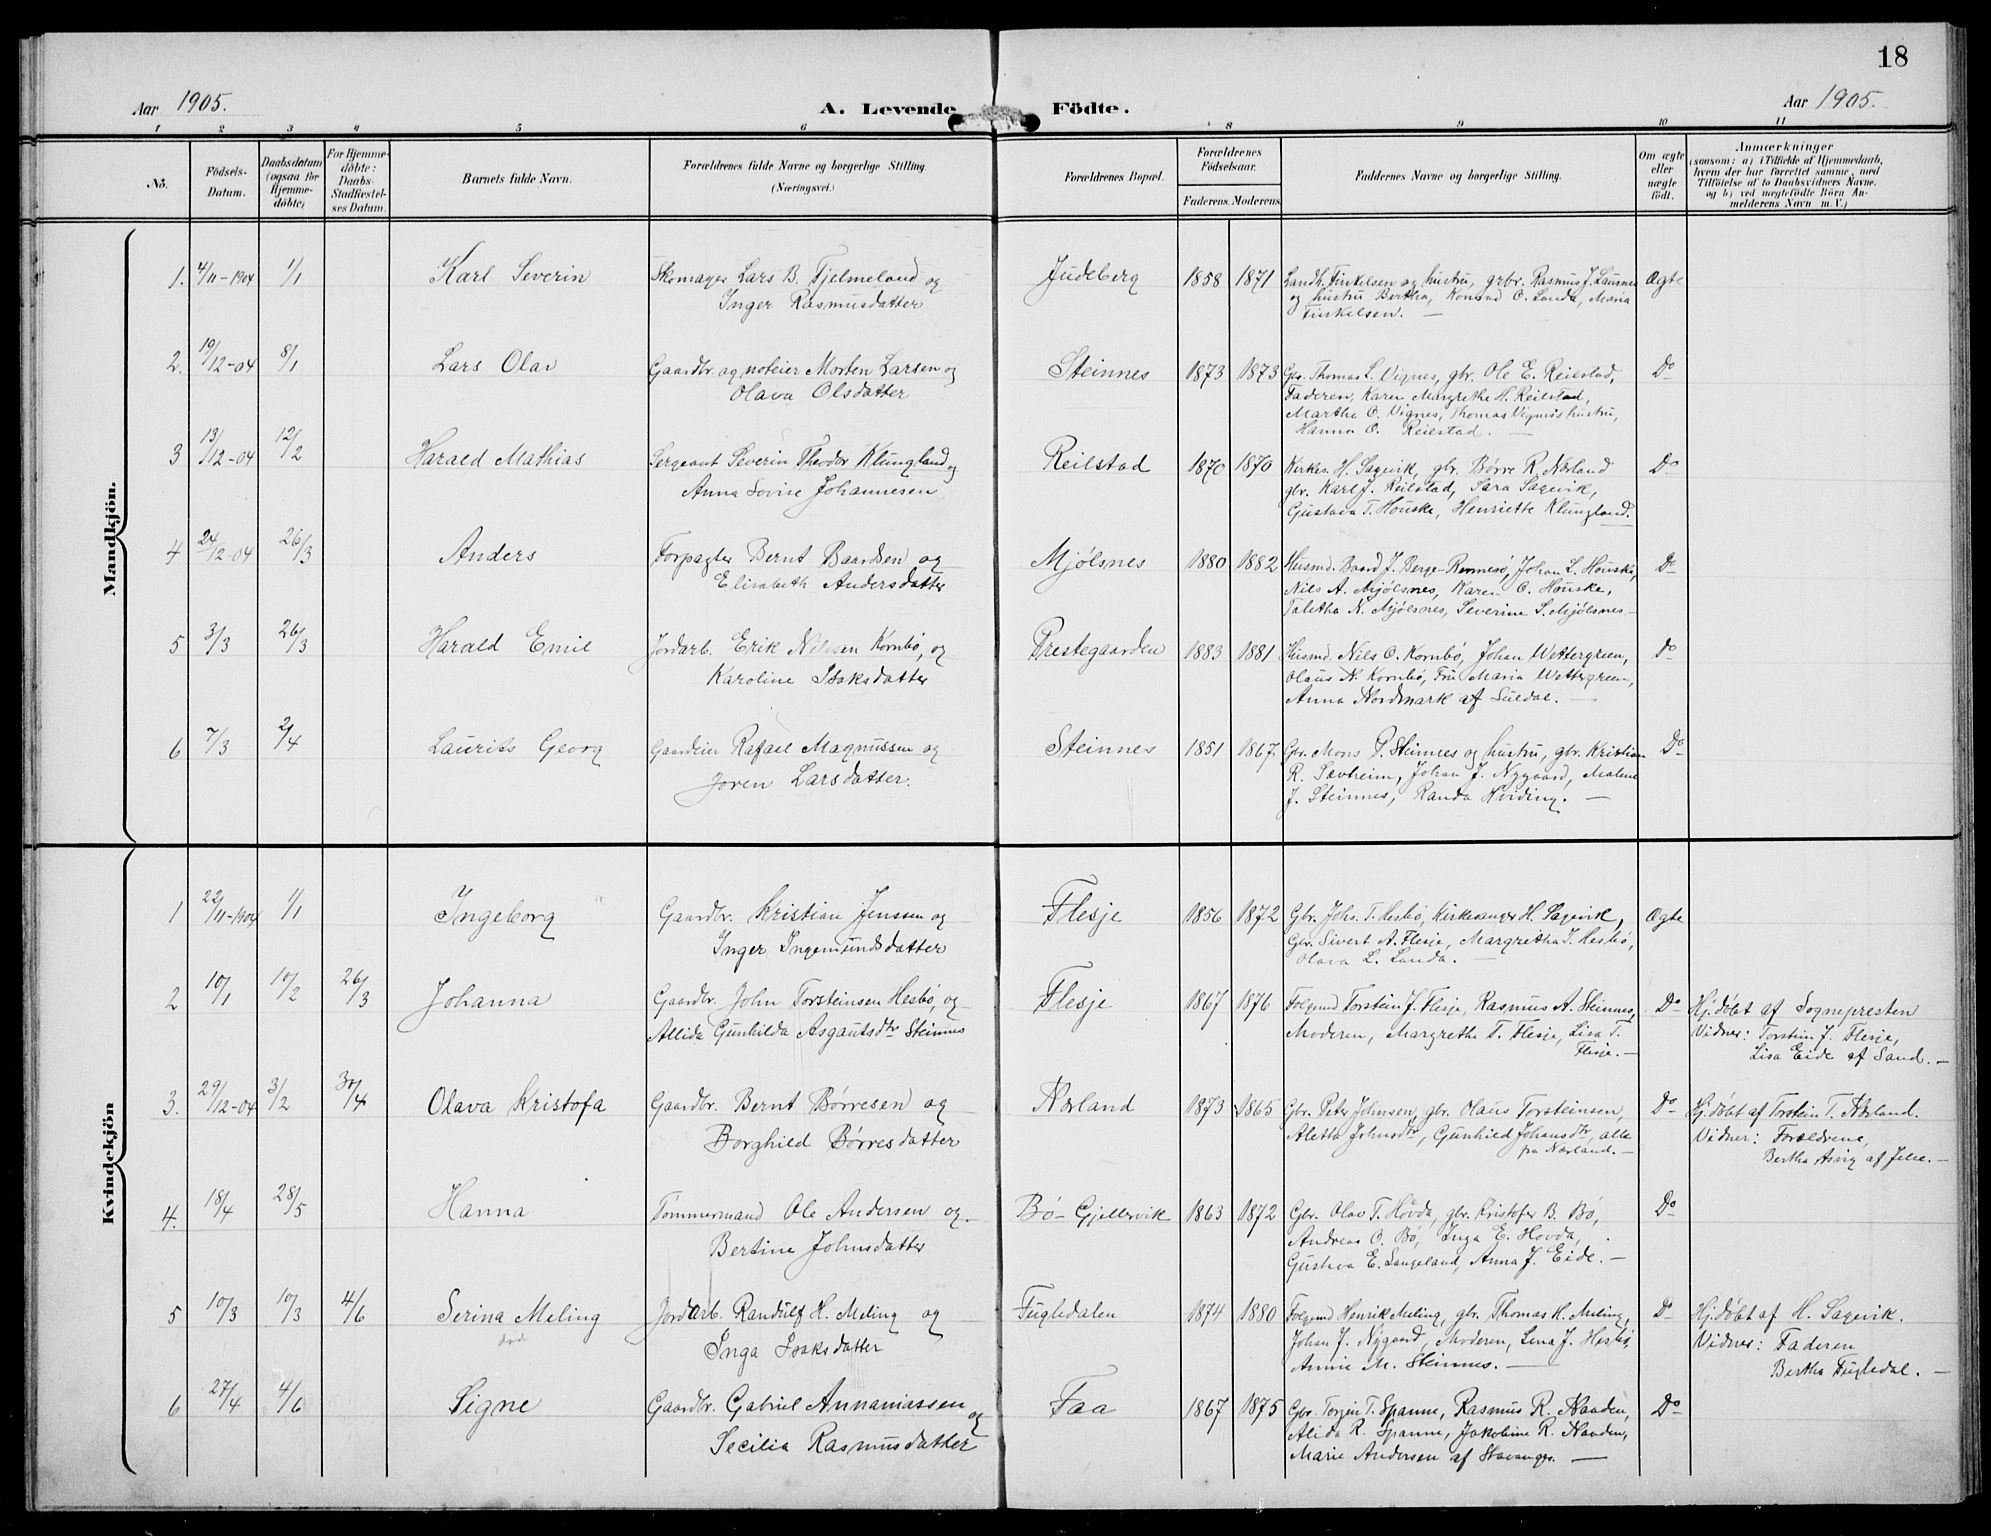 18
Aar 1905.
A. Levende Födte.
Aar 1905.
1 2 3 4 5 6 8 9 10 11
No.
Födsels-Datum.
Daabsdatum (ogsaa for Hjemme-döbte)
For Hjemme-döbte: Daabs-Stadfæstel-ses Datum.
Barnets fulde Navn.
Forældrenes fulde Navne og borgerlige Stilling.
(Næringsvei.)
Forældrenes Bopæl.
Forældrenes Födselsaar.
Faderens. Moderens.
Faddernes Navne og borgerlige Stilling.
Om ægte eller uægte födt.
Anmærkninger
(saasom: a) i Tilfælde af Hjemmedaab,
hvem der har forrettet samme, med
Tilföielse af to Daabsvidners Navne.
og b) ved uægtefödte Börn An-
melderens Navn m. V.)
Mandkjön.
1. 4/11-1904 1/1 Karl Severin Skomager Lars B. Fjelmeland og Judeberg 1858 1871 Landh. Finkelsen og hustru, grbr. Rasmus J. Ægte
Inger Rasmusdatter og hustru Bertha, Konrad O. Landa, Maria
Finkelsen. —
2. 19/12-04 8/1 Lars Olav Gaardbr. og noteier Morten Larsen og Steinnes 1873 1873 Gbr. Thomas L. Vignes, gbr. Ole E. Reilstad, Do
Olava Olsdatter Faderen, Karen Margrethe H. Reilstad,
Martha O. Vignes, Thomas Vignes's hustru,
Hanna O. Reilstad. —
3 13/12-04 12/2 Harald Mathias Sergeant Severin Theodor Klungland og Reilstad 1870 1870 Kirkes. H. Sagevik, gbr. Børre R. Nærland Do
Anna Sovine Johannesen gbr. Karl J. Reilstad, Sara Sagevik,
Gustava T. Houske, Henriette Klungland.
4 24/12-04 26/3 Anders Forpagter Bernt Baardsen og Mjølsnes 1880 1882 Husmd. Baard J. Berge-Rennesø, Johan L. Houske, Do
Elisabeth Andersdatter Nils A. Mjølsnes, Karen O. Houske,
Taletha N. Mjølsnes, Severine S. Mjølsnes —
5 3/3 26/3 Harald Emil Jordarb. Erik Nilssen Kornbø, og Prestegaarden 1883 1881 Husmd. Nils O. Kornbø, Johan Wettergreen, Do
Karoline Isaksdatter Olaus N. Kornbø, Fru Maria Wettergreen,
Anna Nordmark af Suldal. —
6 7/3 2/4 Laurits Georg Gaardeier Rafael Magnussen og Steinnes 1851 1867. Gbr. Mons P. Steinnes og hustru, gbr. Kristian Do
Joren Larsdatter. R. Sævheim, Johan J. Nygaard, Malene
J. Steinnes, Randa Hviding. —
Kvindekjön
1 22/11-1904 1/1 Ingeborg Gaardbr. Kristian Jenssen og Flesje 1856 1872 Gbr. Johs. T. Hesbø, Kirkesanger H. Sagevik, Ægte
Inger Ingemundsdatter Gbr. Sivert A. Flesje, Margretha T. Hesbø,
Olava L. Landa. —
2 10/1 10/2 26/3 Johanna Gaardbr. John Torsteinsen Hesbø, og Flesje 1867 1876 Folgmd Torstein J. Flesje, Rasmus A. Steinnes, Do Hj.døbt af Sognepresten
Allida Gunhilda Asgautsdtr Steinnes Moderen, Margrethe T. Flesje, Lisa T. Vidner: Torstein J. Flesje,
Flesje. — Lisa Eide af Sand. —
3. 29/12-04 3/2 30/4 Olava Kristofa Gaardbr. Bernt Børresen og Nærland 1873 1865 Gbr. Peter Johnsen, gbr. Olaus Torsteinsen, Do Hj.døbt af Torstein T. Nærland.
Borghild Børresdatter Aletta Johnsdtr, Gunhild Johansdtr, alle Vidner: Forældrene,
fra Nærland. — Bertha af Jelse. —
4. 18/4 28/5 Hanna Tømmermand Ole Andersen og Bø-Gjellervik 1863 1872 Gbr. Olav T. Hovda, gbr. Kristofer B. Bø, Do
Bertine Johnsdatter Andreas O. Bø, Inga E. Hovda,
Gustava E. Langeland, Anna J. Eide. —
5 10/3 10/3 4/6 Serina Meling Jordarb. Randulf H. Meling og Fugledalen 1874 1880 Folgmd Henrik Meling, gbr. Thomas H. Meling, Do Hj.døbt af H. Sagevik.
død Inga Isaksdatter Johan J. Nygaard, Moderen, Lena J. Hesbø, Vidner: Faderen
Annie M. Steinnes. — Bertha Fugledal. —
6 27/4 4/6 Signe Gaardbr. Gabriel Annaniassen og Faa 1867 1875 Gbr. Torgin T. Spanne, Rasmus R. Naaden, Do
Secilia Rasmusdatter Alida R. Spanne, Jakobine R. Naaden,
Marie Andersen af Stavanger. —